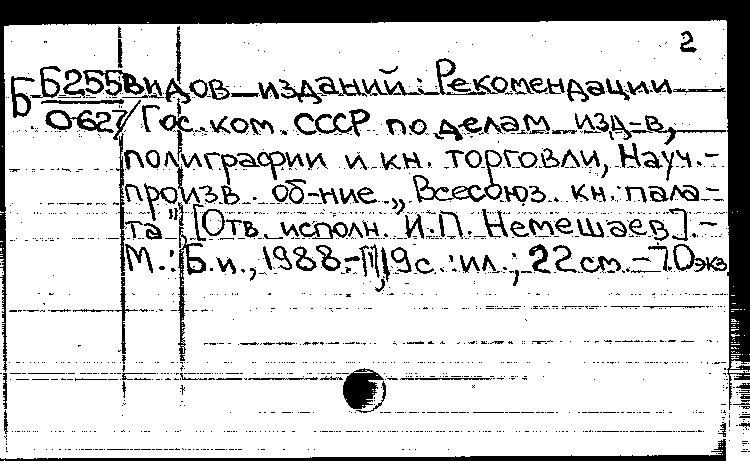 2
Б Б255 видов изданий: Рекомендации
О-627/ Гос. ком. СССР по делам изд-в,
полиграфии и кн. торговли, Науч.-
произв. об-ние „Всесоюз. кн. пала-
та", [Отв. исполн. И.П. Немешаев]. -
М.: Б.и., 1988. - 19 с.: ил.; 22 см. - 70 экз